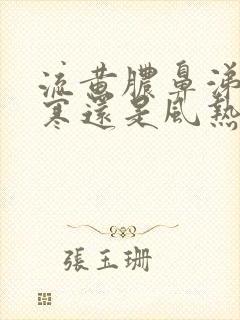 流黄膿鼻涕
寒還是風熱
張玉珊